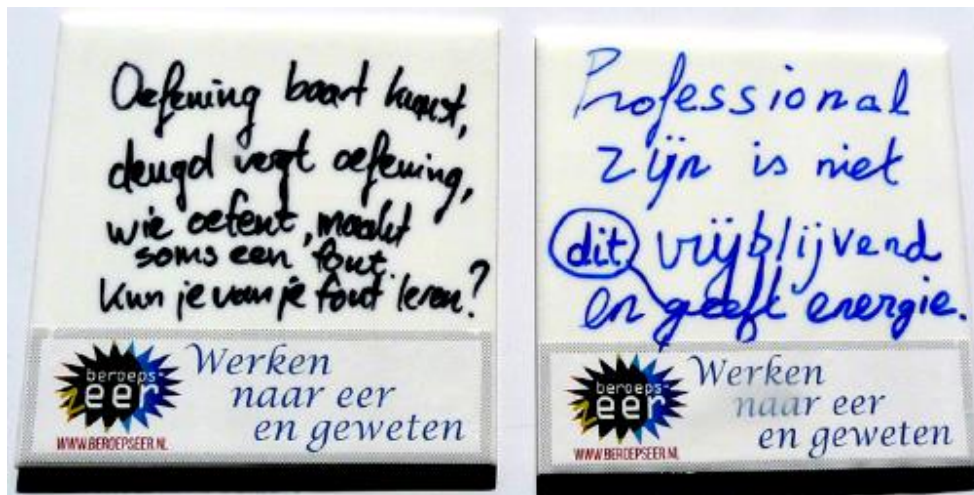 Oefening baart kunst,
deugd vergt oefening,
wie oefent, maakt
soms een fout.
Kun je van je fout leren?
beroeps-
zeer
WWW.BEROEPSEER.NL
Werken
naar eer
en geweten
Professional
zijn is niet
dit vrijblijvend
en geeft energie.
beroeps-
zeer
WWW.BEROEPSEER.NL
Werken
naar eer
en geweten